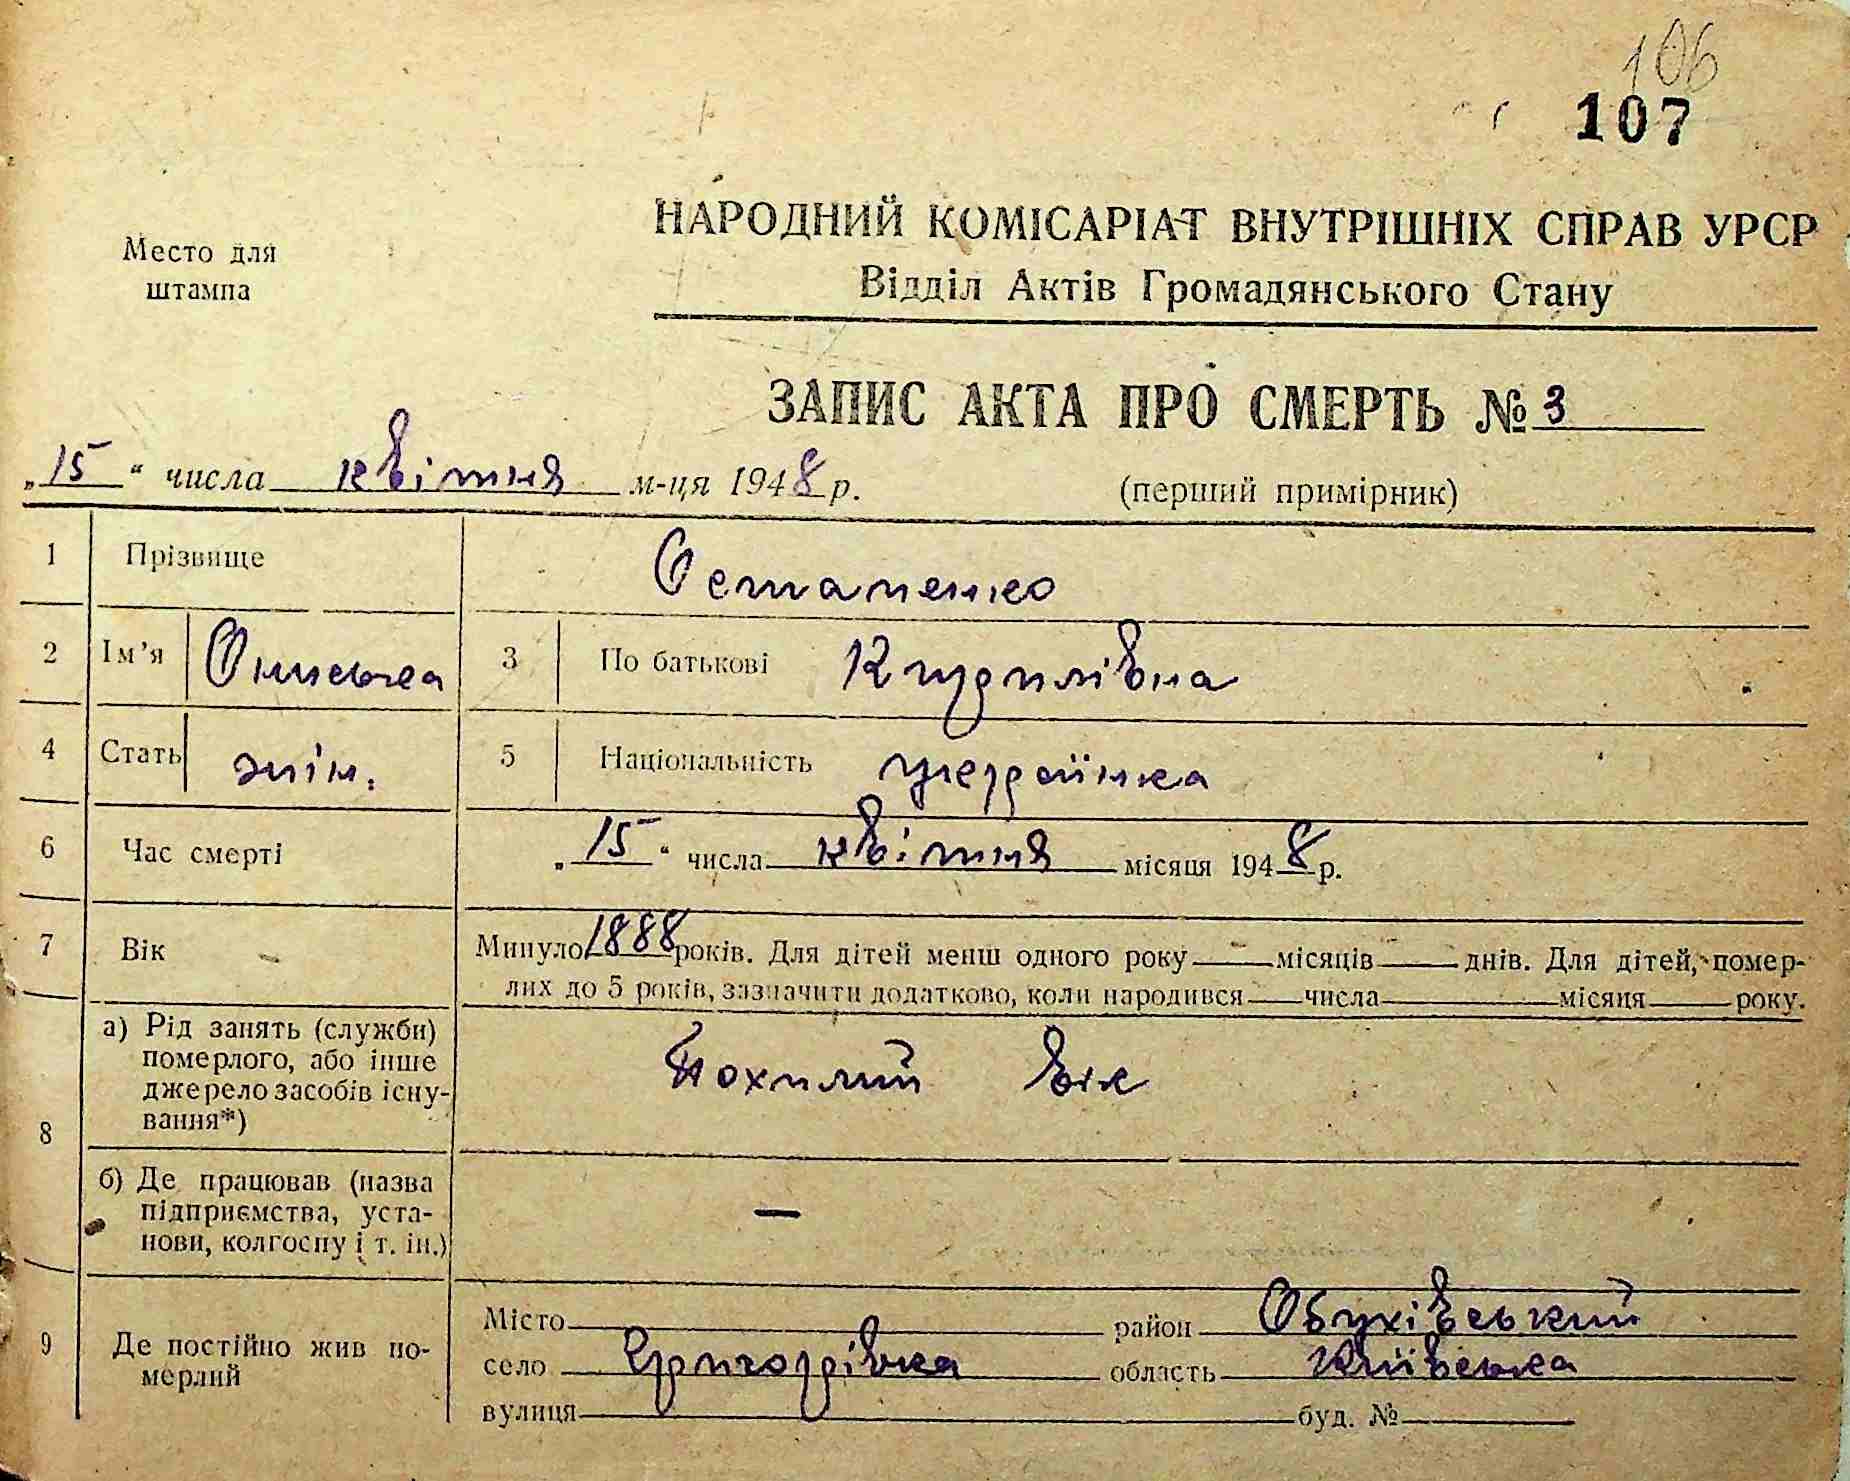 106
107
Место для
штампа
НАРОДНИЙ КОМІСАРІАТ ВНУТРІШНІХ СПРАВ УРСР
Відділ Актів Громадянського Стану
ЗАПИС АКТА ПРО СМЕРТЬ № 3
„15“ числа квітня м-ця 1948 р.
(перший примірник)
1 Прізвище Остапенко
2 Ім'я Ониська 3 По батькові Кирилівна
4 Стать жін. 5 Національність українка
6 Час смерті „15“ числа квітня місяця 1948 р.
7 Вік Минуло 1888 років. Для дітей менш одного року — місяців — днів. Для дітей, помер-
лих до 5 років, зазначити додатково, коли народився — числа — місяця — року.
8 а) Рід занять (служби)
померлого, або інше
джерело засобів існу-
вання*) Похилий вік
б) Де працював (назва
підприємства, уста-
нови, колгоспу і т. ін.) —
9 Де постійно жив по-
мерлий
Місто район Обухівський
село Григорівка область Київська
вулиця буд. №